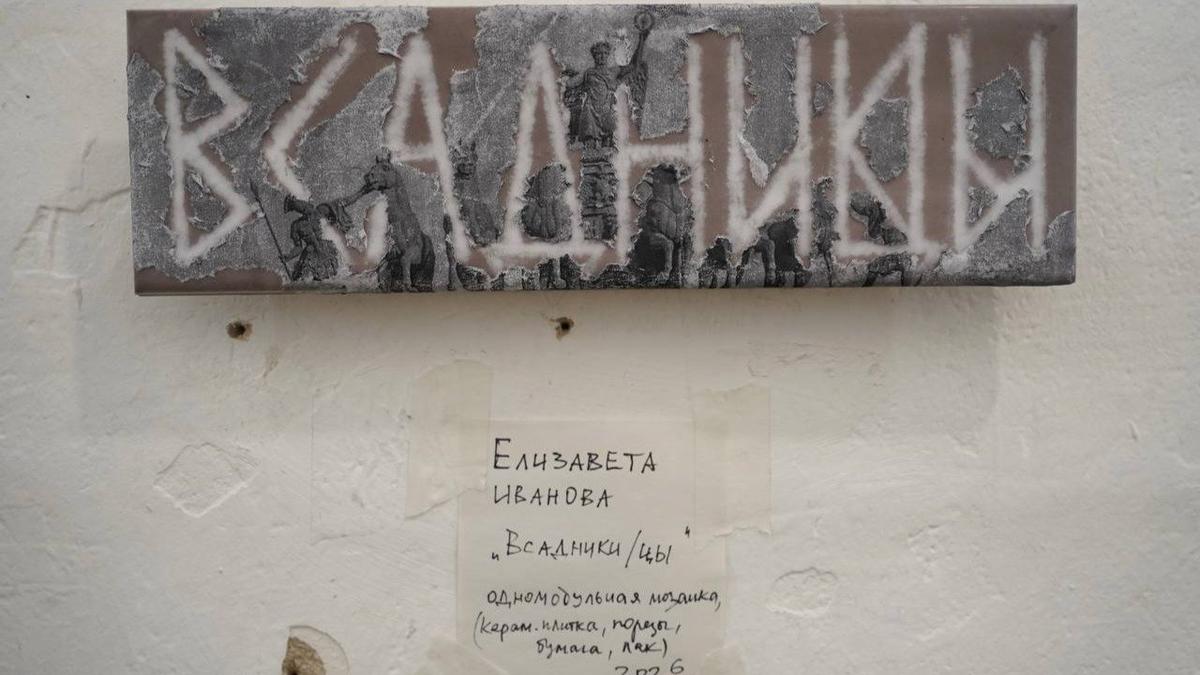 ВСАДНИЦЫ
Елизавета
Иванова
„Всадники/цы"
одномодульная мозаика,
(керам. плитка, порезы,
бумага, лак)
2026